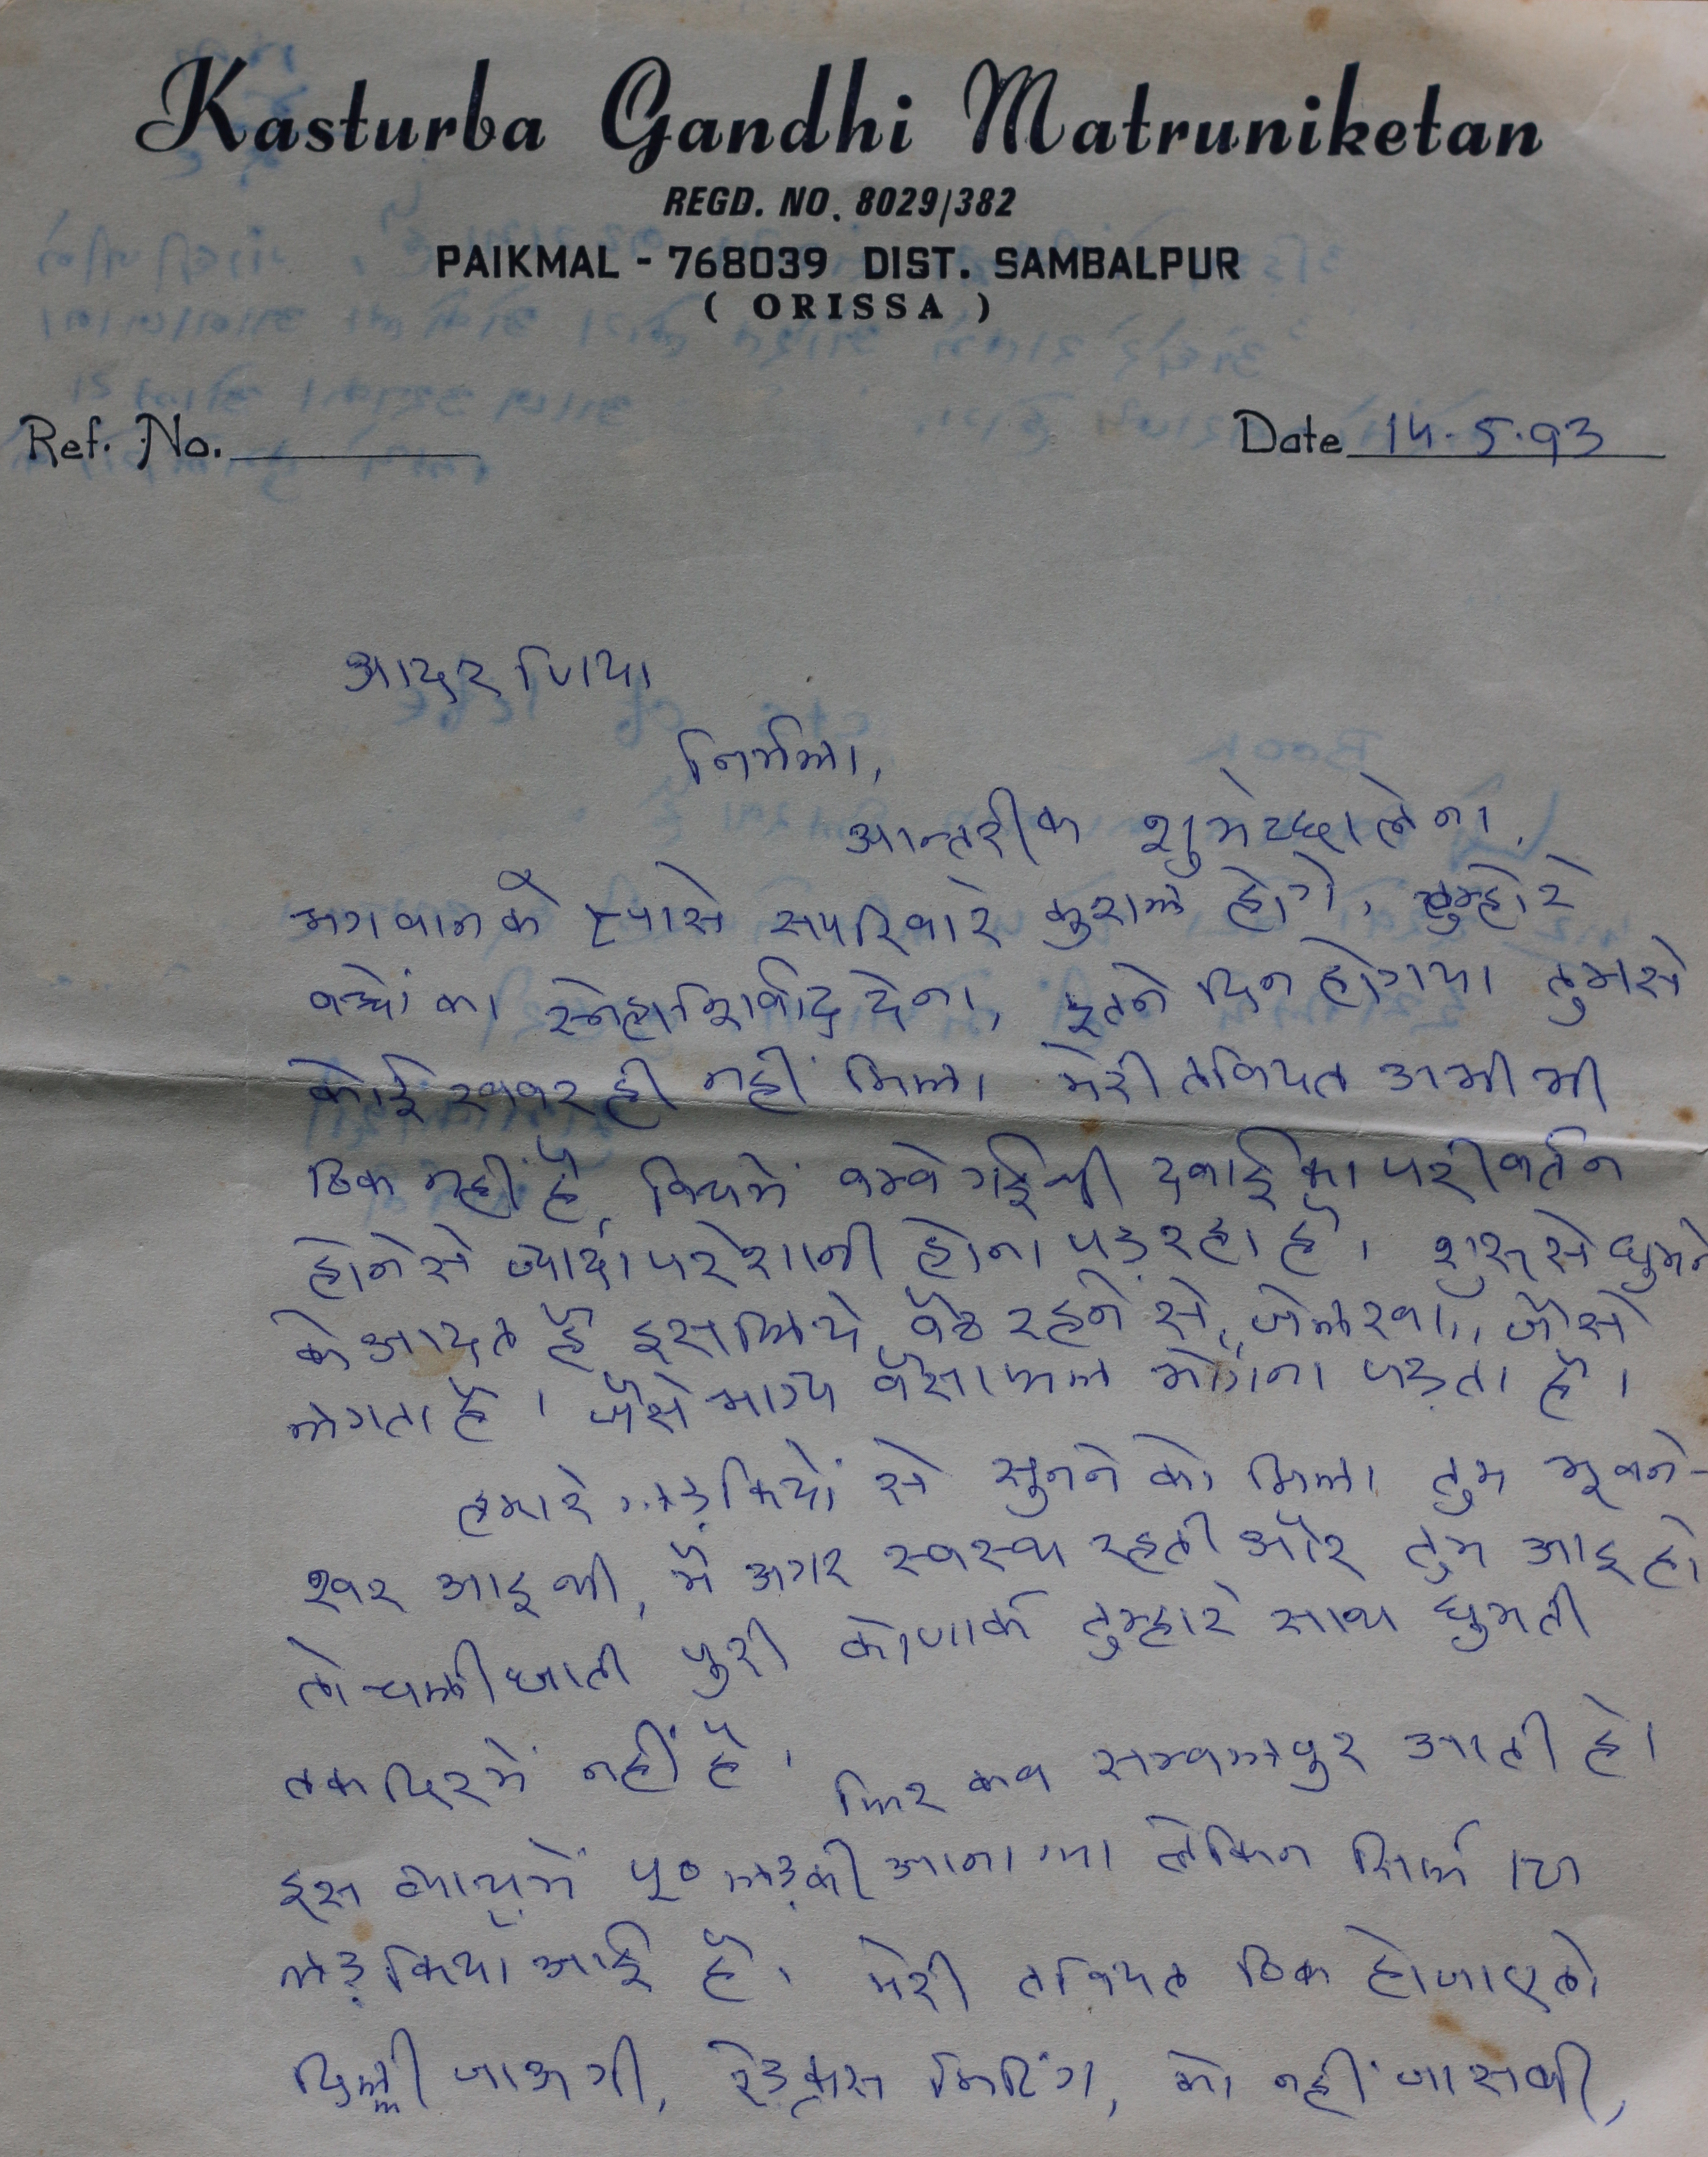 Kasturba Gandhi Matruniketan
REGD. NO. 8029/382
PAIKMAL - 768039 DIST. SAMBALPUR
( ORISSA )
Ref. No.
Date 14.5.93
आदरणिया
निर्मला,
आन्तरीक शुभेच्छा लेना,
भगवानके दयासे सपरिवारे कुशल होंगे, तुम्हारे
बच्चों का स्नेहाशिर्वाद देना, इतने दिन होगया तुमसे
कोई खबर ही नहीं मिला मेरी तबियत अभी भी
ठिक नहीं है, बिचमें बम्बे गई थी दवाई का परीवर्तन
होनेसे ज्यादा परेशानी होना पड़ रहा है। शुरु से घुमने
के आदत है इसलिये बैठ रहने से, जेलखाना, जैसे
लगता है। जैसे भाग्य वैसा फल भोगना पड़ता है।
हमारे लड़कियों से सुनने को मिला तुम भूवने-
श्वर आइ थी, मैं अगर स्वस्थ रहती और तुम आइ हो
तो चली जाती पुरी कोणार्क तुम्हारे साथ घुमती
तकदिरमें नहीं है। फिर कब सम्बलपुर आती हो।
इस में ५० लड़की आना था लेकिन सिर्फ
लड़किया आई है। मेरी तबियत ठिक होजाए तो
दिल्ली जाऊगी, रेडक्रस मिटिंग, को नहीं जासकी,